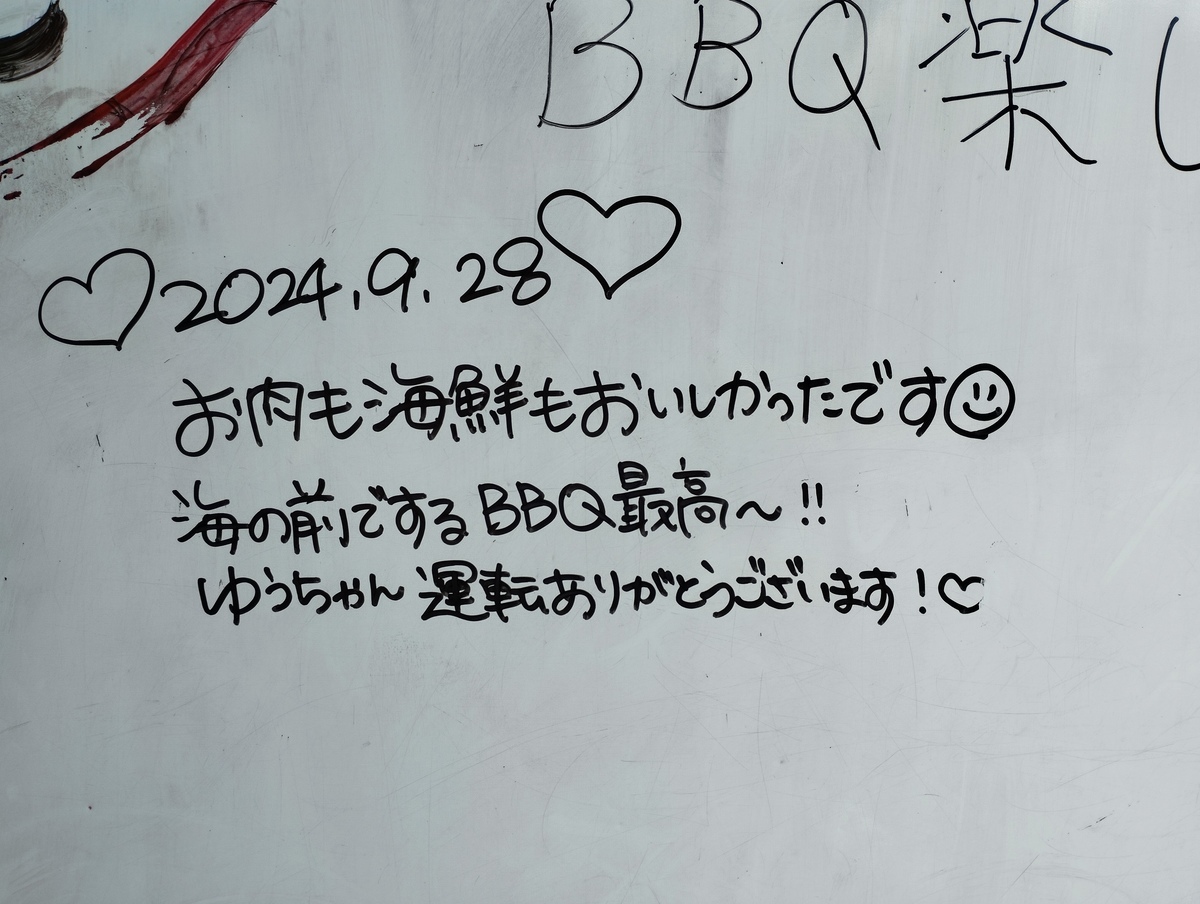 BBQ楽し
♡2024.9.28♡
お肉も海鮮もおいしかったです☺
海の前でするBBQ最高～!!
ゆうちゃん運転ありがとうございます！♡